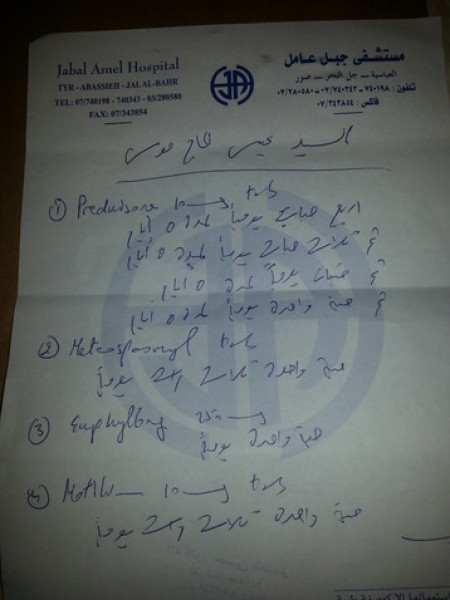 Jabal Amel Hospital
TYR - ABASSIEH - JAL AL-BAHR
TEL: 07/740198 - 740343 - 03/280580
FAX: 07/343854
مستشفى جبل عامل
العباسية – جل البحر – صور
تلفون: ٧٤٠١٩٨ - ٠٧/٧٤٠٣٤٣ - ٠٣/٢٨٠٥٨٠
فاكس: ٠٧/٣٤٣٨٥٤
السيد الحاج
① Prednisone 10 mg tabs
اربع حبات يومياً لمدة ٥ أيام
ثم ثلاث حبات يومياً لمدة ٥ أيام
ثم حبتان يومياً لمدة ٥ أيام
ثم حبة واحدة يومياً لمدة ٥ أيام
② Meteospasmyl tabs
حبة واحدة ثلاث مرات يومياً
③ mg
حبة واحدة يومياً
④ 10 mg tabs
حبة واحدة ثلاث مرات يومياً